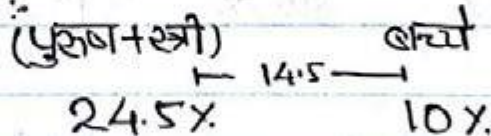 (पुरुष+स्त्री) बच्चे
14.5
24.5% 10%